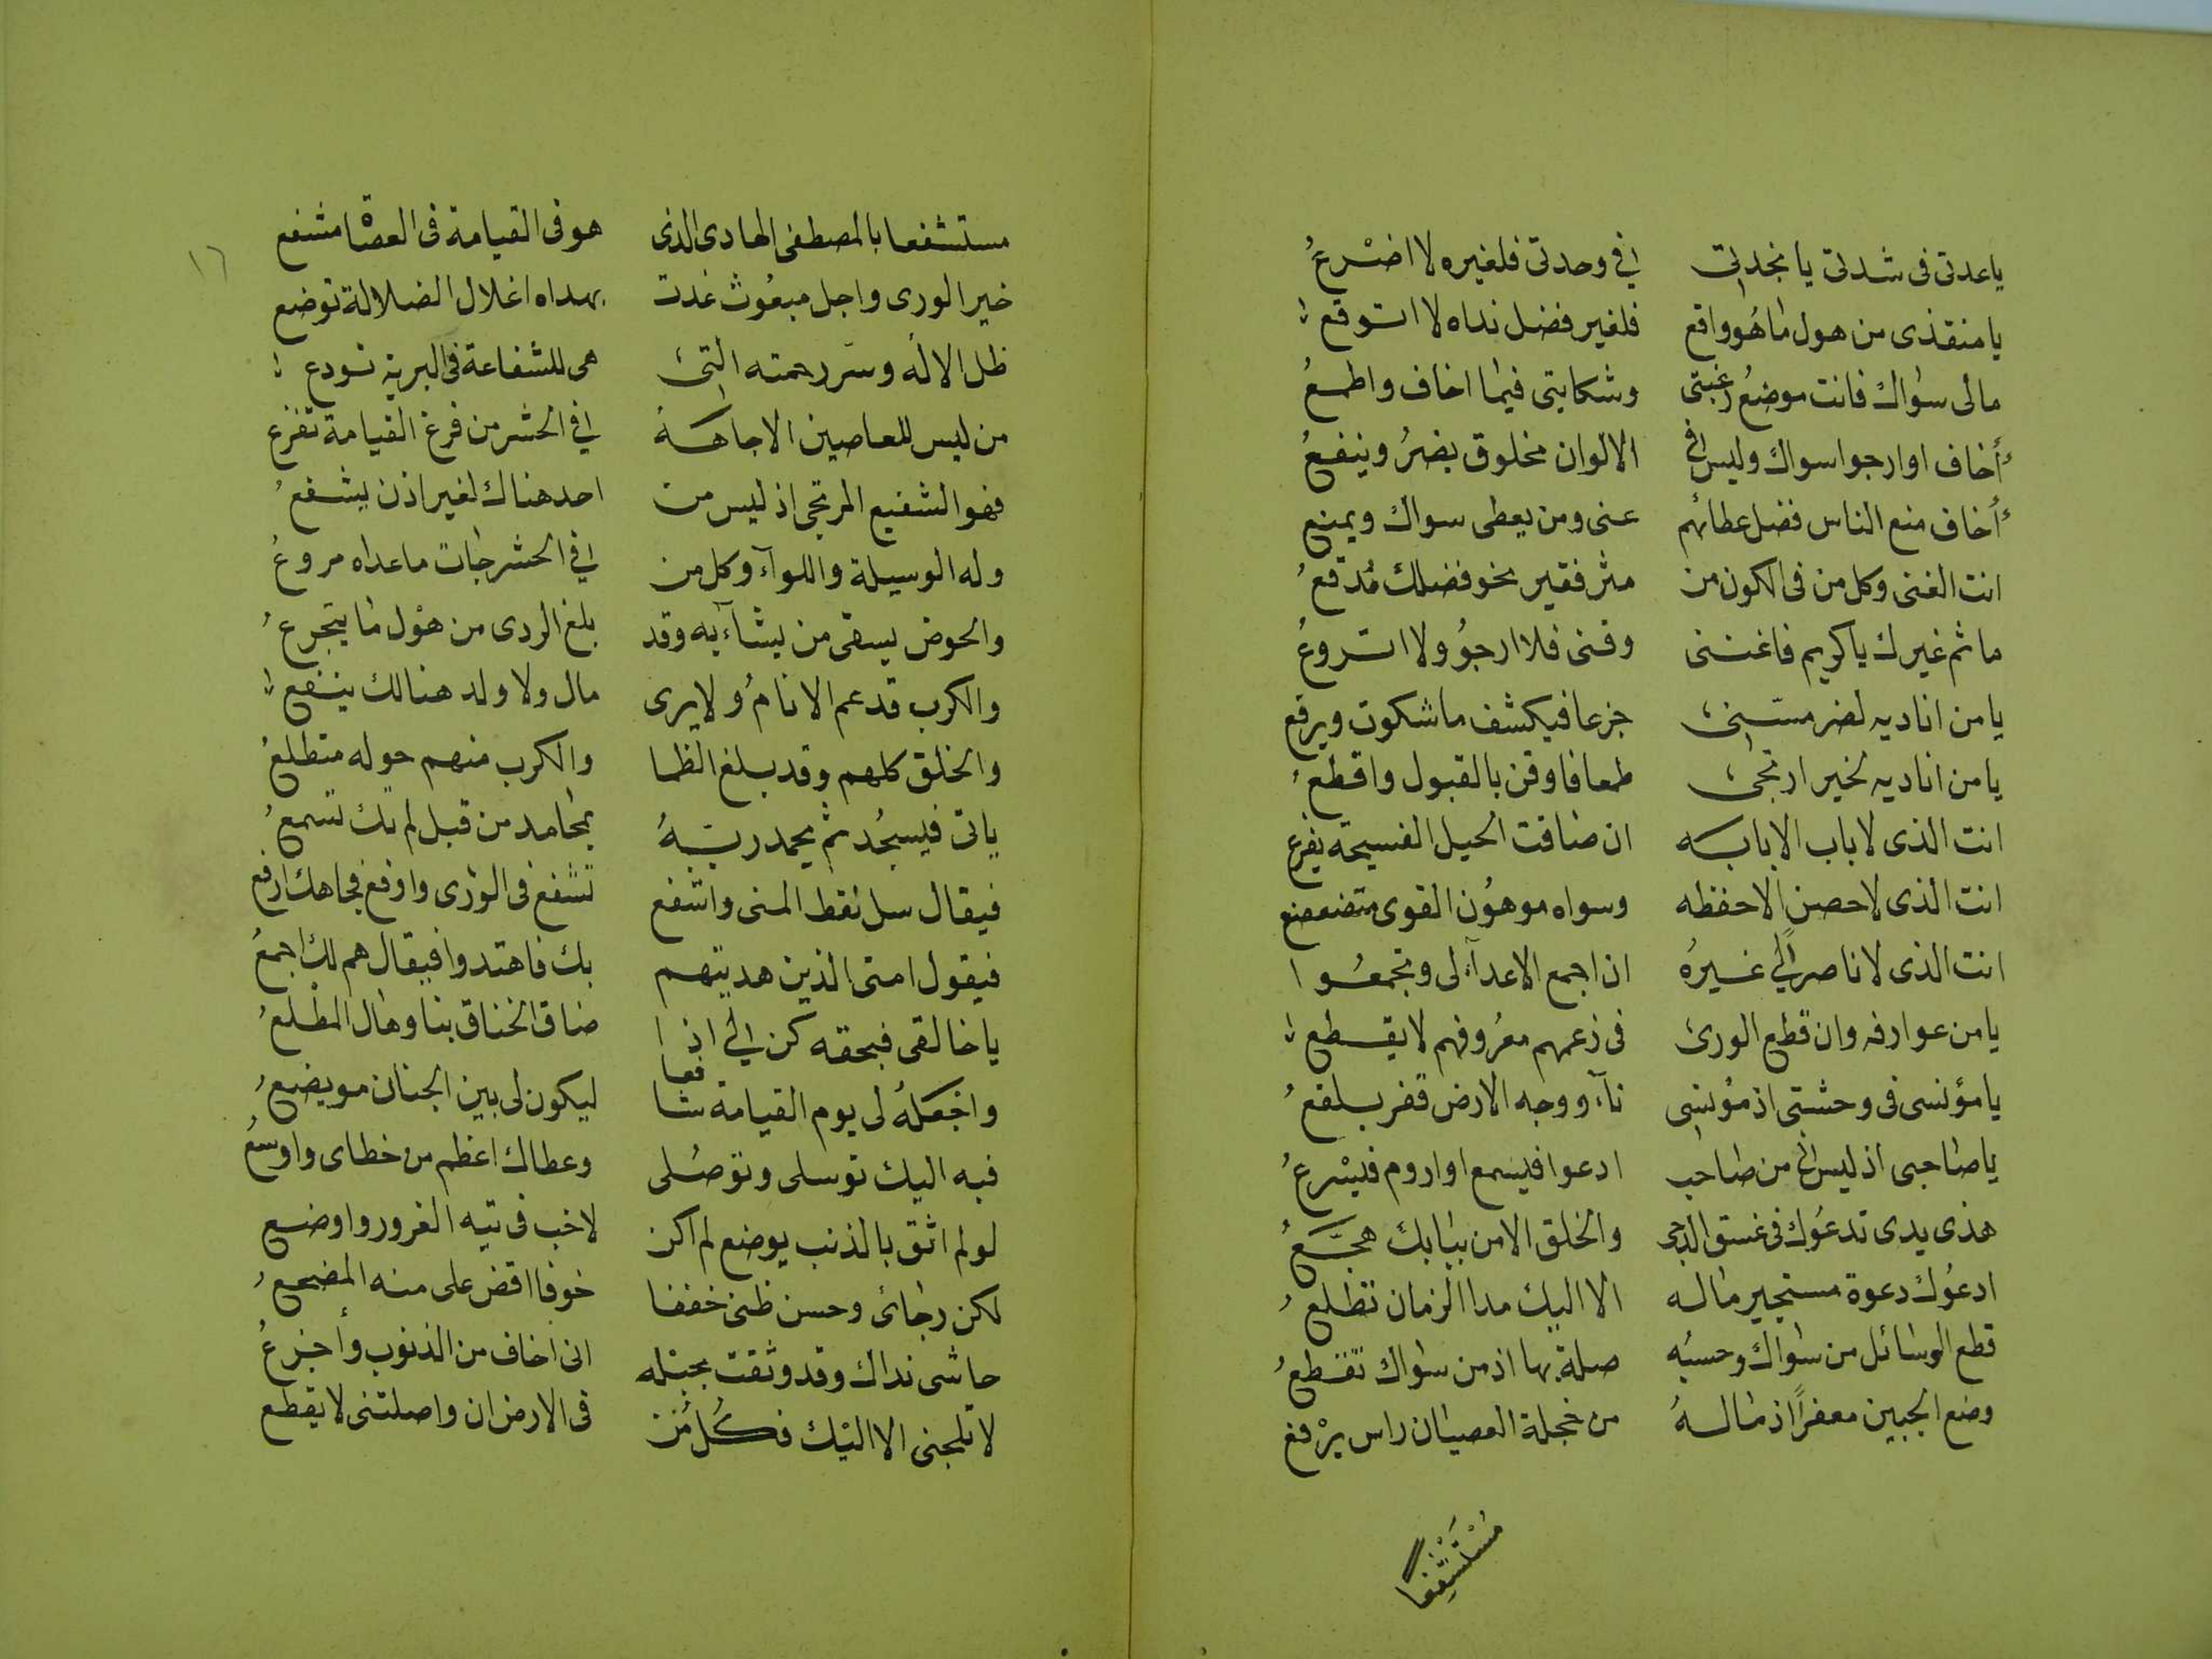 ياعدتى فى شدتى يا نجدتى في وحدتى فلغيره لا اضرع
يا منقذى من هول ما هو واقع فلغير فضل نداه لا اتوقع
مالى سواك فانت موضع رغبتى وشكايتى فيما اخاف واطمع
أأخاف او ارجوا سواك وليس في الالوان مخلوق يضر وينفع
أأخاف منع الناس فضل عطائهم عنى ومن يعطى سواك ويمنع
انت الغنى وكل من فى الكون من مثر فقير نحو فضلك مدقع
ما ثم غيرك ياكريم فاغننى وقنى فلا ارجو ولا اتروع
يا من اناديه لضر مسنى جزعا فيكشف ماشكوت ويرفع
يا من اناديه لخير ارتجى طمعا فاوقن بالقبول واقطع
انت الذى لاباب الا بابه ان ضاقت الحيل الفسيحة يقرع
انت الذى لا حصن الا حفظه وسواه موهون القوى متضعضع
انت الذى لا ناصر لي غيره ان اجمع الاعداء لى وتجمعوا
يا من عوارفه وان قطع الورى فى زعمهم معروفهم لا يقطع
يا مؤنسى فى وحشتى اذ مؤنسى ناء ووجه الارض قفر بلقع
يا صاحبى اذ ليس لي من صاحب ادعوا فيسمع او اروم فيسرع
هذى يدى تدعوك فى غسق الدجى والخلق الا من ببابك هجع
ادعوك دعوة مستجير ماله الا اليك مدا الزمان تطلع
قطع الوسائل من سواك وحسبه صلة بها اذ من سواك تقطع
وضع الجبين معفرا اذ ماله من خجلة العصيان راس يرفع
مستشفعا
١٦
مستشفعا بالمصطفى الهادى الذى هو فى القيامة فى العصاة مشفع
خير الورى واجل مبعوث غدت بهداه اغلال الضلالة توضع
ظل الاله وسر رحمته التى هى للشفاعة فى البرية تودع
من ليس للعاصين الا جاهه في الحشر من فزع القيامة تفزع
فهو الشفيع المرتجى اذ ليس من احد هناك لغير اذن يشفع
وله الوسيلة واللوآء وكل من في الحشر جات ماعداه مروع
والحوض يسقى من يشآء به وقد بلغ الردى من هول ما يتجرع
والكرب قد عم الانام ولا يرى مال ولا ولد هنالك ينفع
والخلق كلهم وقد بلغ الظما والكرب منهم حوله متطلع
ياتى فيسجد ثم يحمد ربه بمحامد من قبل لم تك تسمع
فيقال سل تعط المنى واشفع تشفع فى الورى وارفع فجاهك ارفع
فيقول امتى الذين هديتهم بك فاهتدوا فيقال هم لك اجمع
يا خالقى فبحقه كن لي اذا ضاق الخناق بنا وهال المطلع
واجعله لى يوم القيامة شافعا ليكون لى بين الجنان مويضع
فبه اليك توسلى وتوصلى وعطاك اعظم من خطاى واوسع
لو لم اثق بالذنب يوضع لم اكن لاخب فى تيه الغرور واوضع
لكن رجائى وحسن ظنى خففا خوفا اقض على منه المضجع
حاشى نداك وقد وثقت بحبله انى اخاف من الذنوب وأجزع
لا تلجنى الا اليك فكل من فى الارض ان واصلتنى لا يقطع